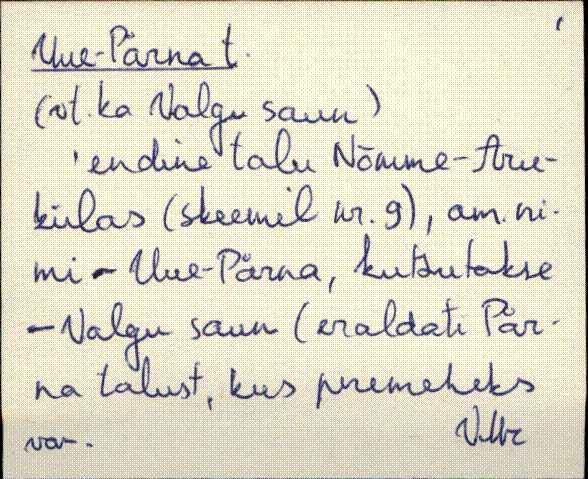 Uue-Pärna t.
(vt. ka Valgu saun)
'endine talu Nõmme-Aru-
külas (skeemil nr. 9), am. ni-
mi - Uue-Pärna, kutsutakse
- Valgu saun (eraldati Pär-
na talust, kus peremeheks
va-.